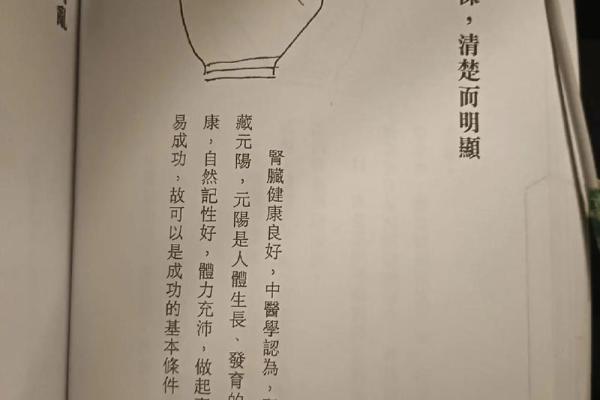 ，清楚而明顯
腎臟健康良好，中醫學認為，
藏元陽，元陽是人體生長、發育的
康，自然記性好，體力充沛，做起
易成功，故可以是成功的基本條件
亂